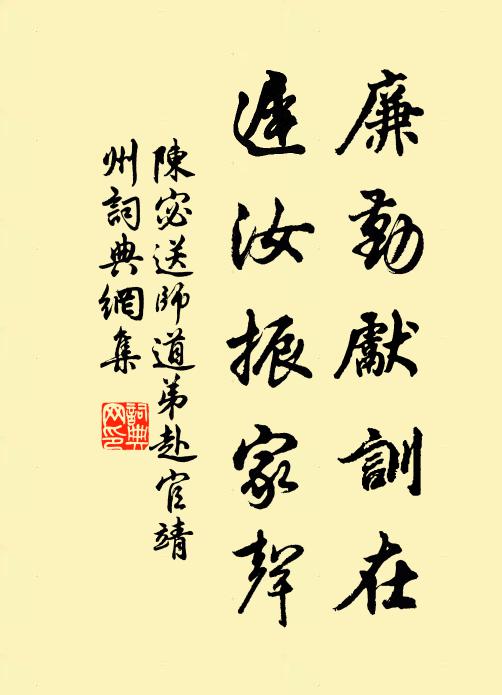 廉勤獻訓在
遲汝振家聲
陳宓送師道弟赴官靖
州詞典網集
詞典
网印